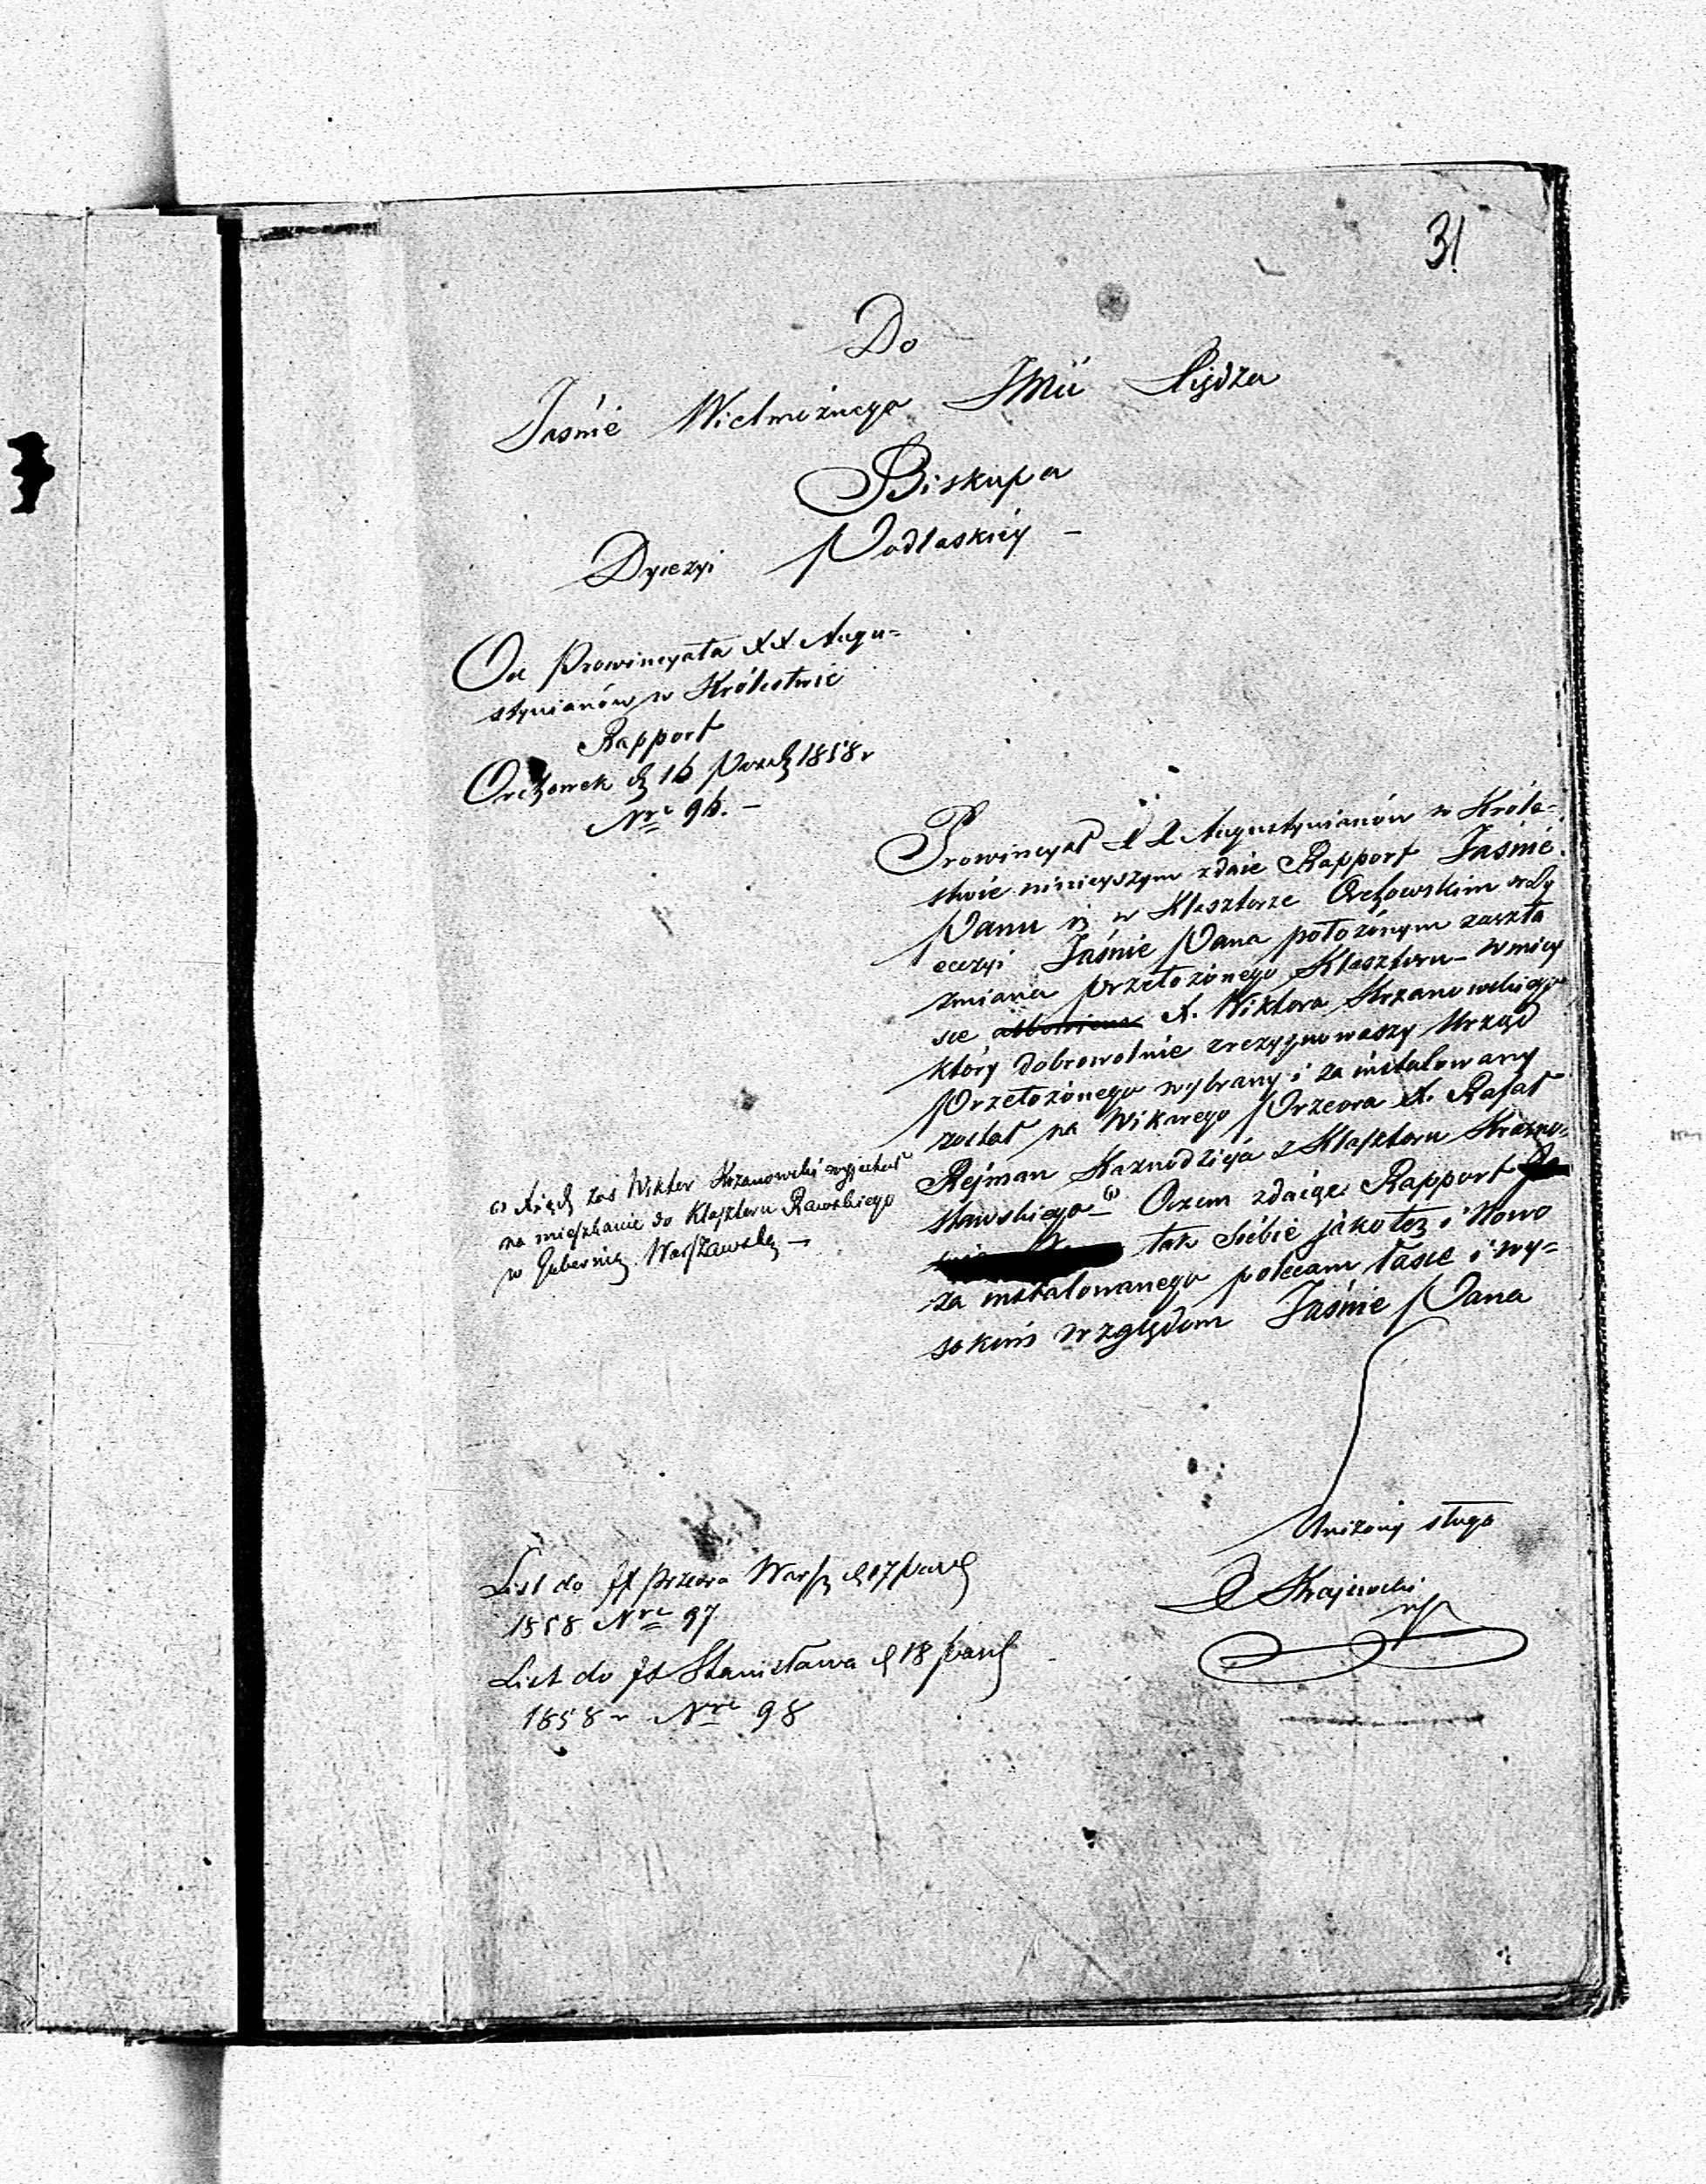 31
Do
Jaśnie Wielmożnego JMĆ Xiędza
Biskupa
Dyecezyi Podlaskiéy –
Od Prowincyała XX Augu=
stynianów w Królestwie
Rapport
Orchowek d. 16 Paźdz 1858 r
Nro 96. –
Prowincyał XX Augustynianów w Króle=
stwie niniejszym zdaie Rapport Jaśnie
Panu iż w Klasztorze Orchowskim w Dy
ecezyi Jaśnie Pana położónym zaszła
zmiana Przełożónego Klasztoru – w miey
sce X. Wiktora Krzanowskiego
który dobrowolnie zrezygnowaszy Urząd
Przełożónego wybrany i za instalowany
został na Wikarego Przeora X. Rafał
Rejman Kaznodzieja z Klasztoru Krasno=
stawskiego – (1) Oczem zdaiąc Rapport
tak Siebie jako też i Nowo
za instalowanego polecam łasce i wy=
sokim względom Jaśnie Pana
(1) Xiądz zaś Wiktor Krzanowski wyjechał
na mieszkanie do Klasztoru Rawskiego
w Gubernią Warszawską –
Uniżony sługa
X Krajewski
mp
List do JX Przeora Warsz d 17 paźd
1858 Nro 97
List do JX Stanisława d 18 paźd
1858 r Nro 98